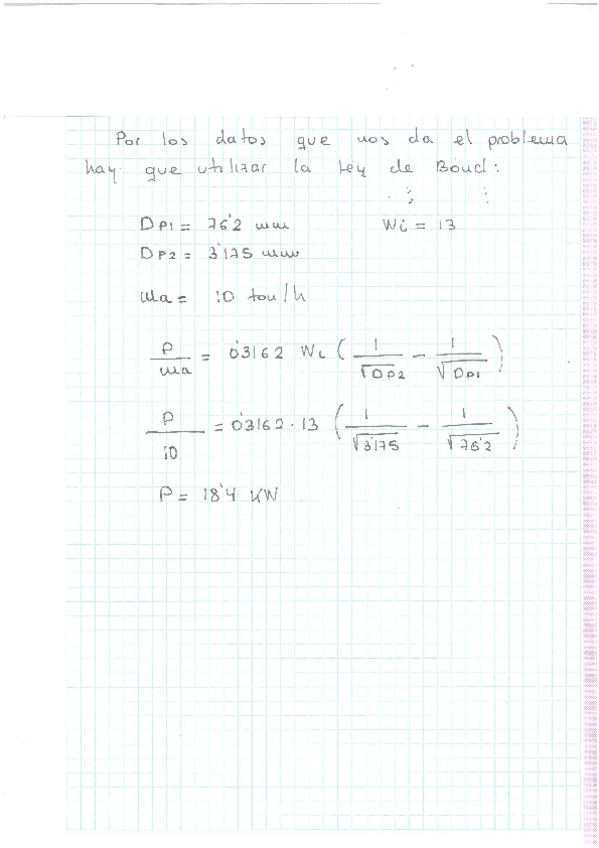 Por los datos que nos da el problema
hay que utilizar la Ley de Bond:
Dp1 = 76'2 mm Wi = 13
Dp2 = 3'175 mm
ma = 10 ton/h
P/ma = 0'3162 Wi (1/√Dp2 - 1/√Dp1)
P/10 = 0'3162 · 13 (1/√3'175 - 1/√76'2)
P = 18'4 KW